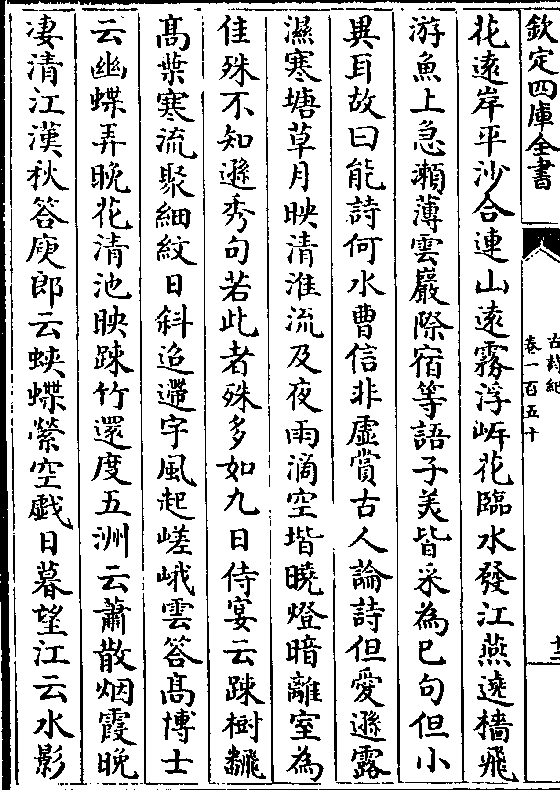 欽定四庫全書
古詩紀
卷一百五十
花遶岸平沙合連山遠霧浮岍花臨水發江燕遶檣飛
游魚上急瀬薄雲巖際宿等語子美皆采為已句但小
異耳故曰能詩何水曹信非虛賞古人論詩但愛遜露
濕寒塘草月映清淮流及夜雨滴空堦曉燈暗離室為
佳殊不知遜秀句若此者殊多如九日侍宴云踈樹飜
髙葉寒流聚細紋日斜迢遰宇風起嵯峨雲答髙博士
云幽蝶弄晚花清池映踈竹還度五洲云蕭散烟霞晚
凄清江漢秋答庾郎云蛺蝶縈空戯日暮望江云水影